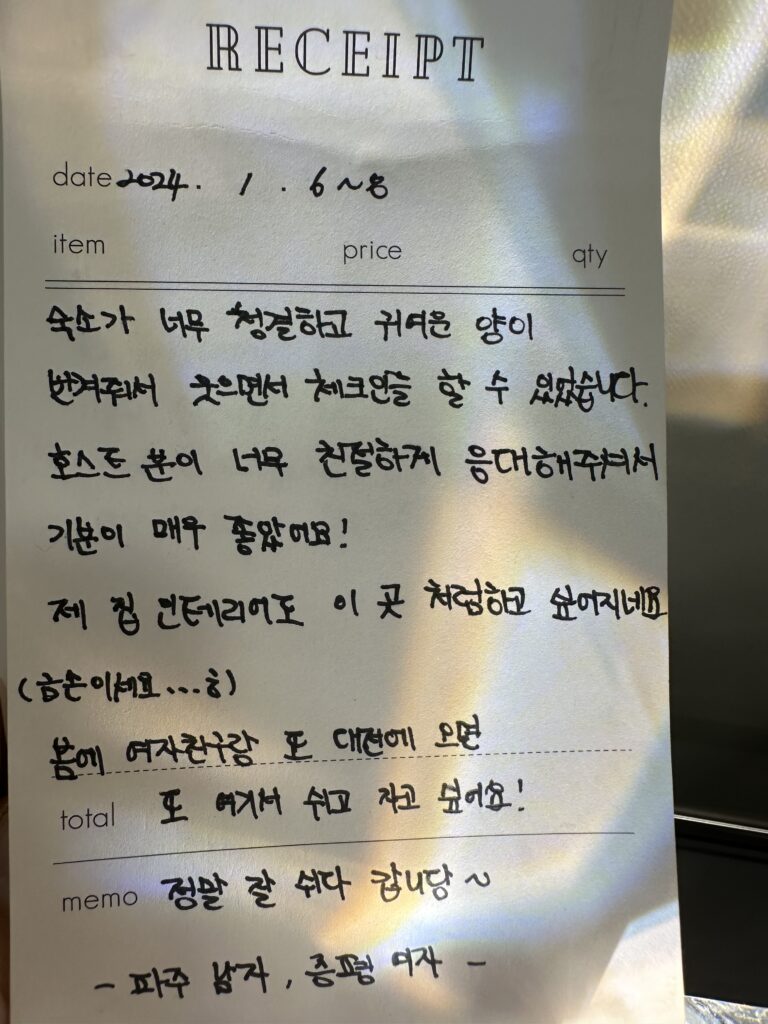 RECEIPT
date 2024. 1. 6~8
item price qty
숙소가 너무 청결하고 귀여운 양이
반겨줘서 웃으면서 체크인을 할 수 있었습니다.
호스트 분이 너무 친절하게 응대해주셔서
기분이 매우 좋았어요!
제 집 인테리어도 이 곳 처럼하고 싶어지네요
(금손이세요...ㅎ)
봄에 여자친구랑 또 대전에 오면
total 또 여기서 쉬고 자고 싶어요!
memo 정말 잘 쉬다 갑니당~
- 파주 남자, 증평 여자 -